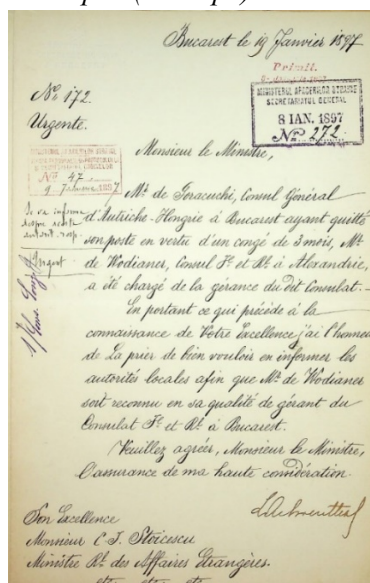 Bucarest le 19 Janvier 1897
Primit.
MINISTERUL AFACERILOR STRAINE
SECRETARIATUL GENERAL
8 IAN. 1897
No 272
No 172.
Urgente.
Monsieur le Ministre,
No 47
9 Januarie 1897
Mr de Goracuchi, Consul Général
d'Autriche-Hongrie à Bucarest ayant quitté
son poste en vertu d'un congé de 3 mois, Mr
de Wodianer, Consul Jl et Rl à Alexandrie,
a été chargé de la gérance du dit Consulat.-
Se va informa
Urgent
En portant ce qui précède à la
connaissance de Votre Excellence j'ai l'honneur
de La prier de bien vouloir en informer les
autorités locales afin que Mr de Wodianer
soit reconnu en sa qualité de gérant du
Consulat Jl et Rl à Bucarest.
Veuillez agréer, Monsieur le Ministre,
l'assurance de ma haute considération.
Son Excellence
Monsieur C. J. Stoicescu
Ministre Rl des Affaires Etrangères.
etc. etc. etc.